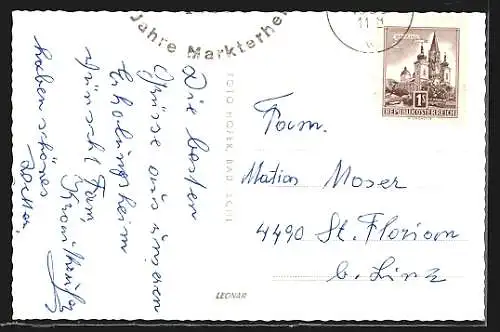 Jahre Markterhe
11
Die besten
Grüsse aus unseren
Erholungsheim
wünscht Fam.
haben schönes
Wetter.
FOTO HOFER, BAD ISCHL
LEONAR
1S
REPUBLIK ÖSTERREICH
Fam.
Moser
4490 St. Florian
b. Linz